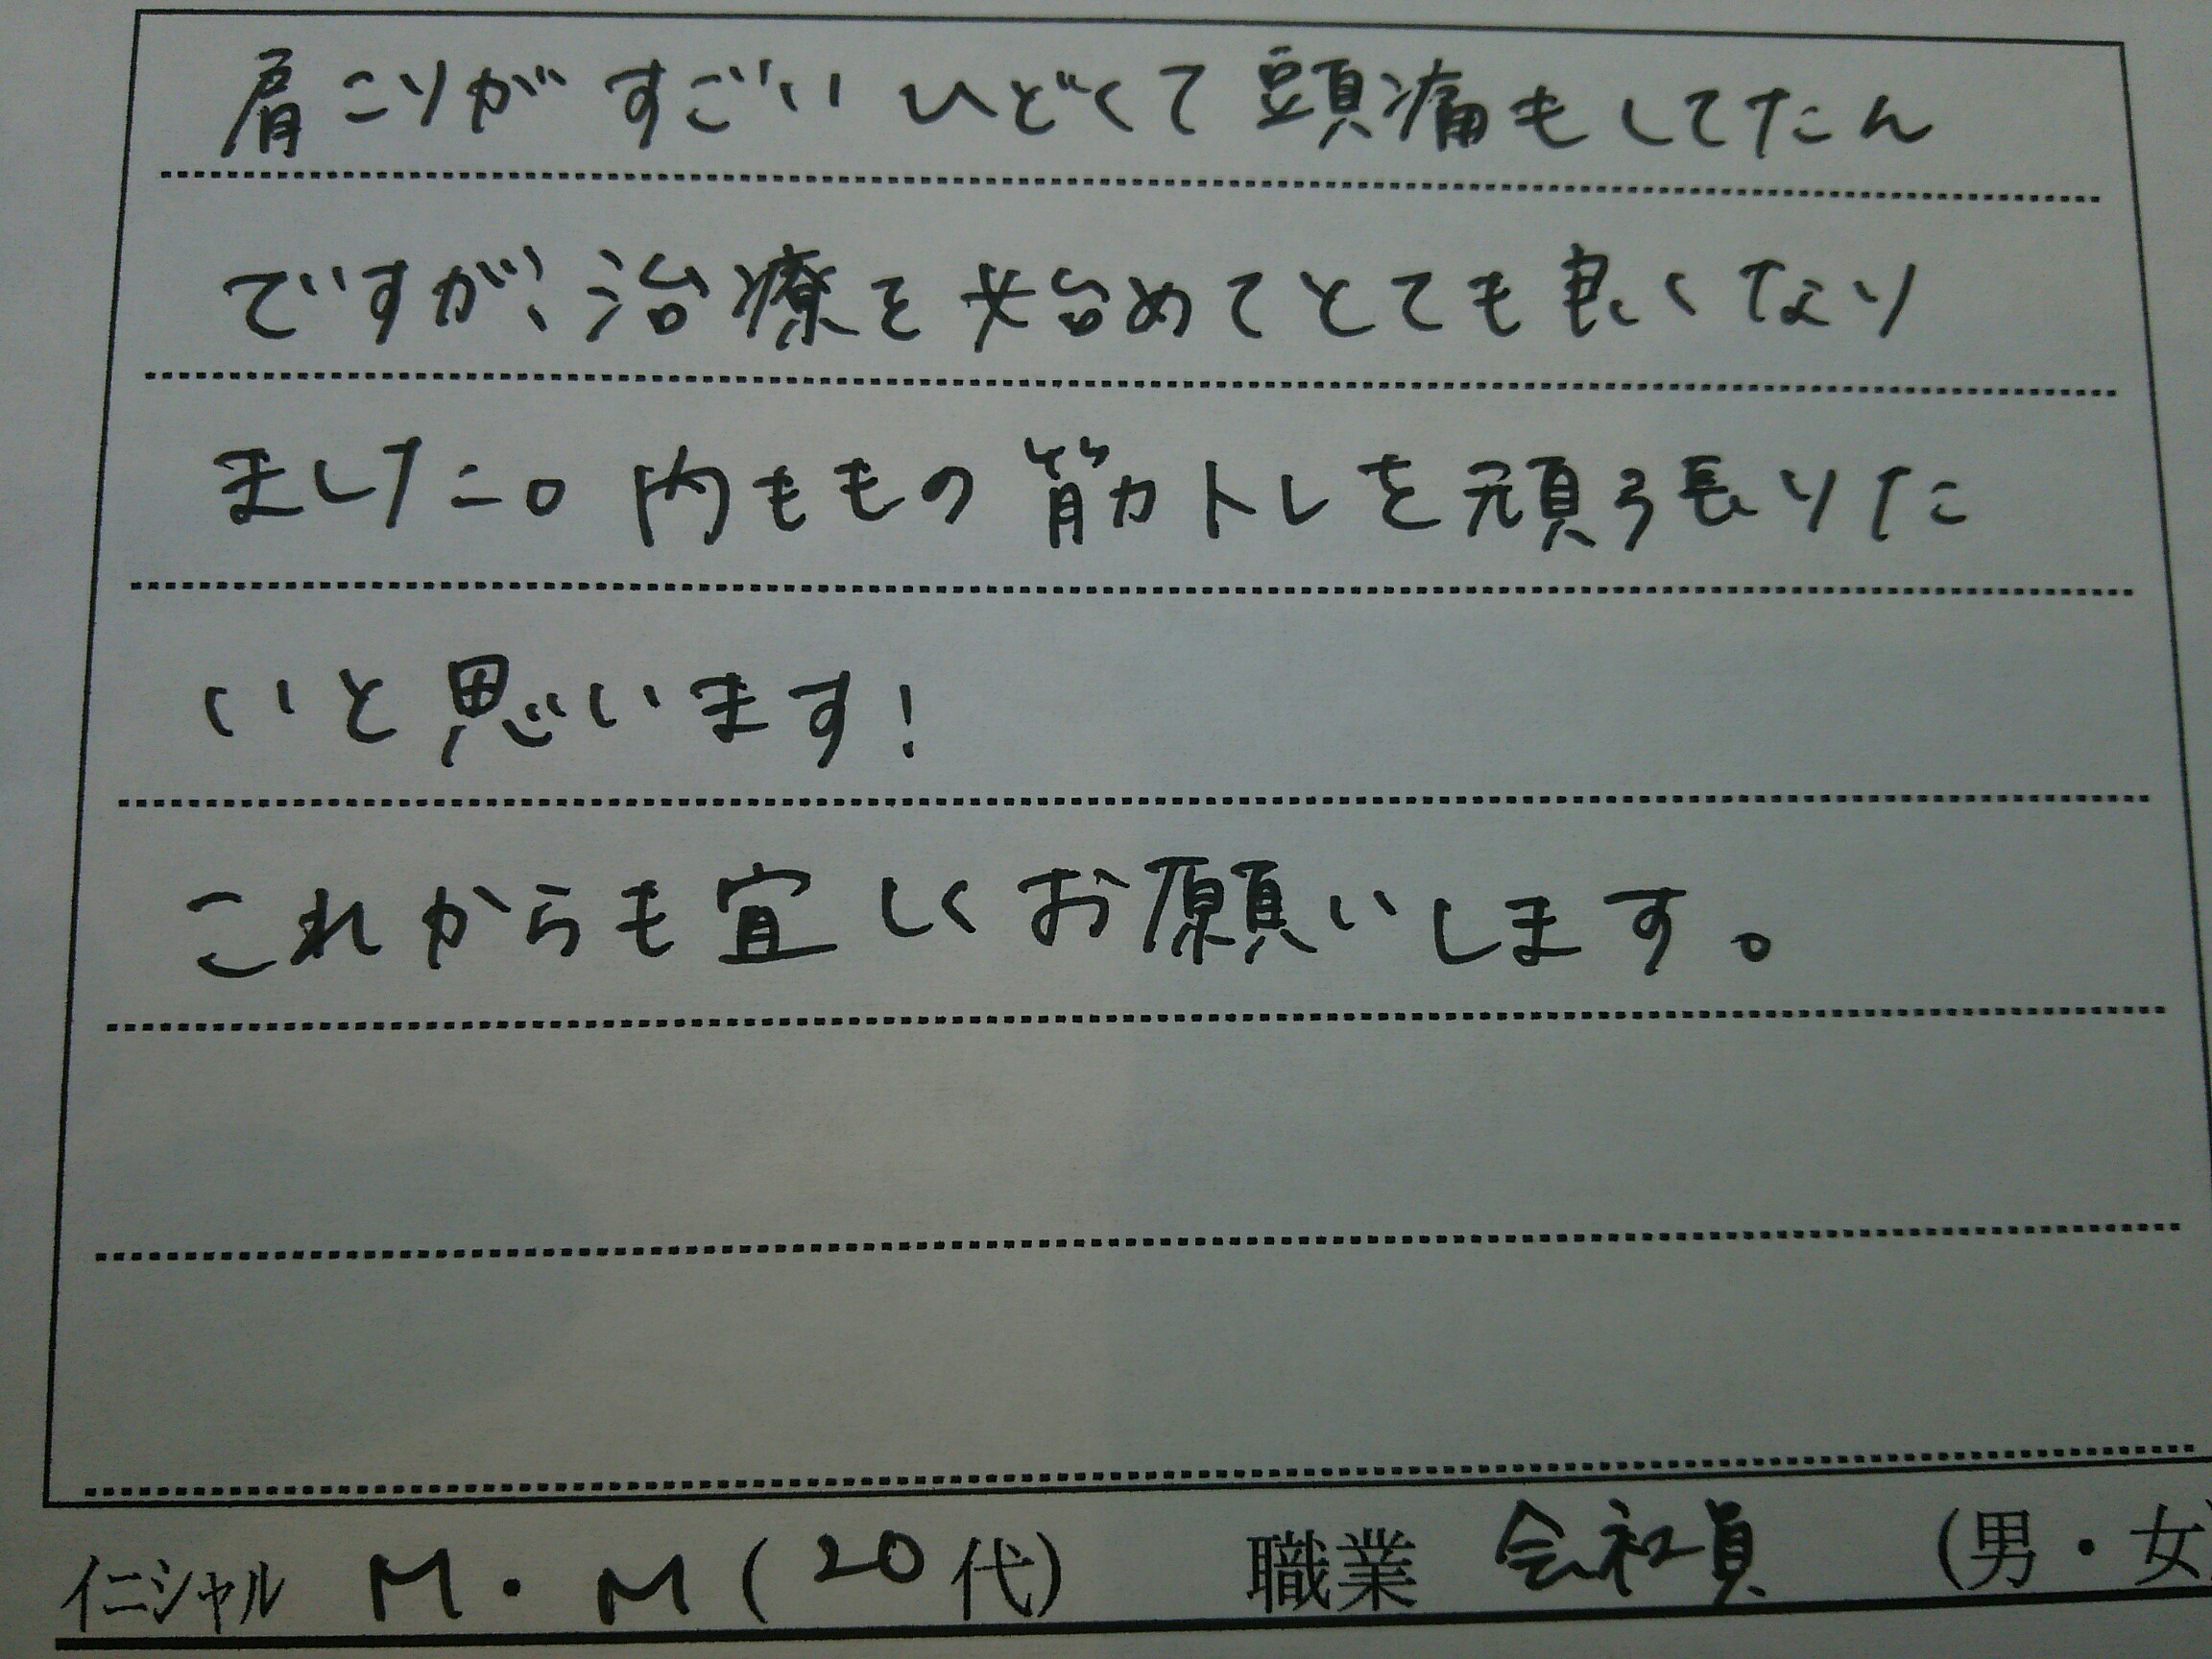 肩こりがすごいひどくて頭痛もしてたん
ですが、治療を始めてとても良くなり
ました。内ももの筋トレを頑張りた
いと思います!
これからも宜しくお願いします。
イニシャル M・M(20代) 職業 会社員 (男・女)